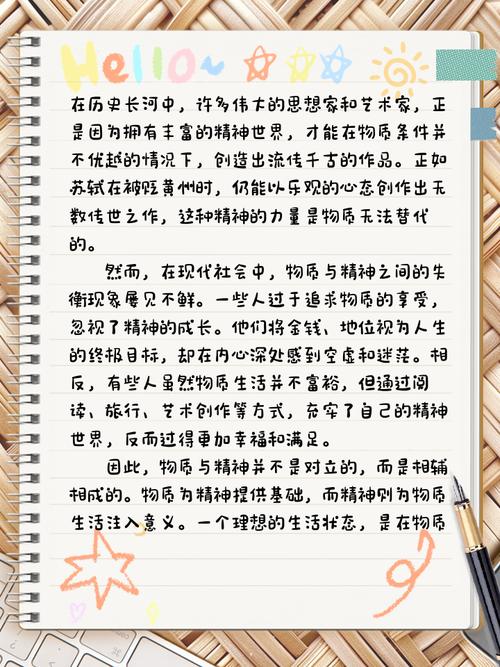 Hello~
在历史长河中，许多伟大的思想家和艺术家，正
是因为拥有丰富的精神世界，才能在物质条件并
不优越的情况下，创造出流传千古的作品。正如
苏轼在被贬黄州时，仍能以乐观的心态创作出无
数传世之作，这种精神的力量是物质无法替代
的。
然而，在现代社会中，物质与精神之间的失
衡现象屡见不鲜。一些人过于追求物质的享受，
忽视了精神的成长。他们将金钱、地位视为人生
的终极目标，却在内心深处感到空虚和迷茫。相
反，有些人虽然物质生活并不富裕，但通过阅
读、旅行、艺术创作等方式，充实了自己的精神
世界，反而过得更加幸福和满足。
因此，物质与精神并不是对立的，而是相辅
相成的。物质为精神提供基础，而精神则为物质
生活注入意义。一个理想的生活状态，是在物质